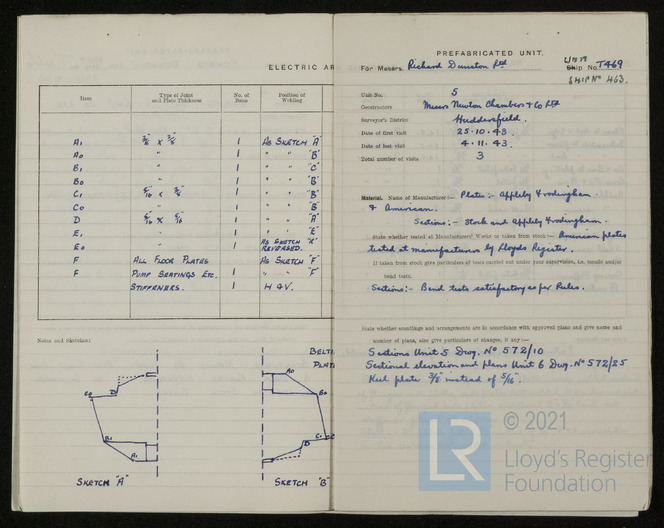 ELECTRIC AR
Item
Type of Joint and Plate Thickness
No. of Items
Position of Welding
A1 3/8" x 3/8" 1 AS SKETCH "A"
A0 " 1 " " "B"
B1 " 1 " " "C"
B0 " 1 " " "B"
C1 5/16" x 3/8" 1 " " "B"
C0 " 1 " " "B"
D 5/16" x 5/16" 1 " " "A"
E1 " 1 " " "E"
E0 " 1 AS SKETCH REVERSED.
F ALL FLOOR PLATES AS SKETCH "F"
F PUMP SEATINGS ETC. 1 " " "F"
STIFFENERS. 1 H & V.
Notes and Sketches:
BELTI
PLATE
C0 D B1 A1
A0 B0 C1 D
SKETCH "A"
SKETCH "B"
PREFABRICATED UNIT.
For Messrs. Richard Dunston Ltd
UNIT
Ship No. T469
SHIP No 463.
Unit No. 5
Constructors Messrs Newton Chambers & Co Ltd
Surveyor's District Huddersfield.
Date of first visit 25.10.43.
Date of last visit 4.11.43.
Total number of visits 3
Material. Name of Manufacturer:- Plate:- Appleby Frodingham.
& American.
Sections:- Stock and Appleby Frodingham.
State whether tested at Manufacturers' Works or taken from stock:- American plates
tested at manufacturers by Lloyds Register.
If taken from stock give particulars of tests carried out under your supervision, i.e. tensile and/or
bend tests.
Sections:- Bend tests satisfactory as per Rules.
State whether scantlings and arrangements are in accordance with approved plans and give name and
number of plans, also give particulars of changes, if any:-
Sections Unit 5 Dwg. No 572/10
Sectional elevation and plans Unit 6 Dwg. No 572/25
Keel plate 3/8" instead of 5/16".
© 2021
LR
Lloyd's Register
Foundation